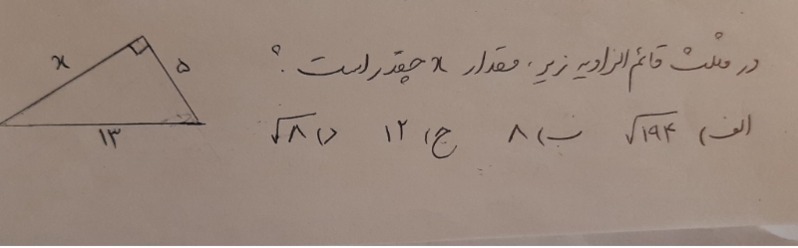 در مثلث قائم الزاویه زیر، مقدار x چقدر است؟
الف) √۱۹۴ ب) ۸ ج) ۱۲ د) √۸
x
۵
۱۳